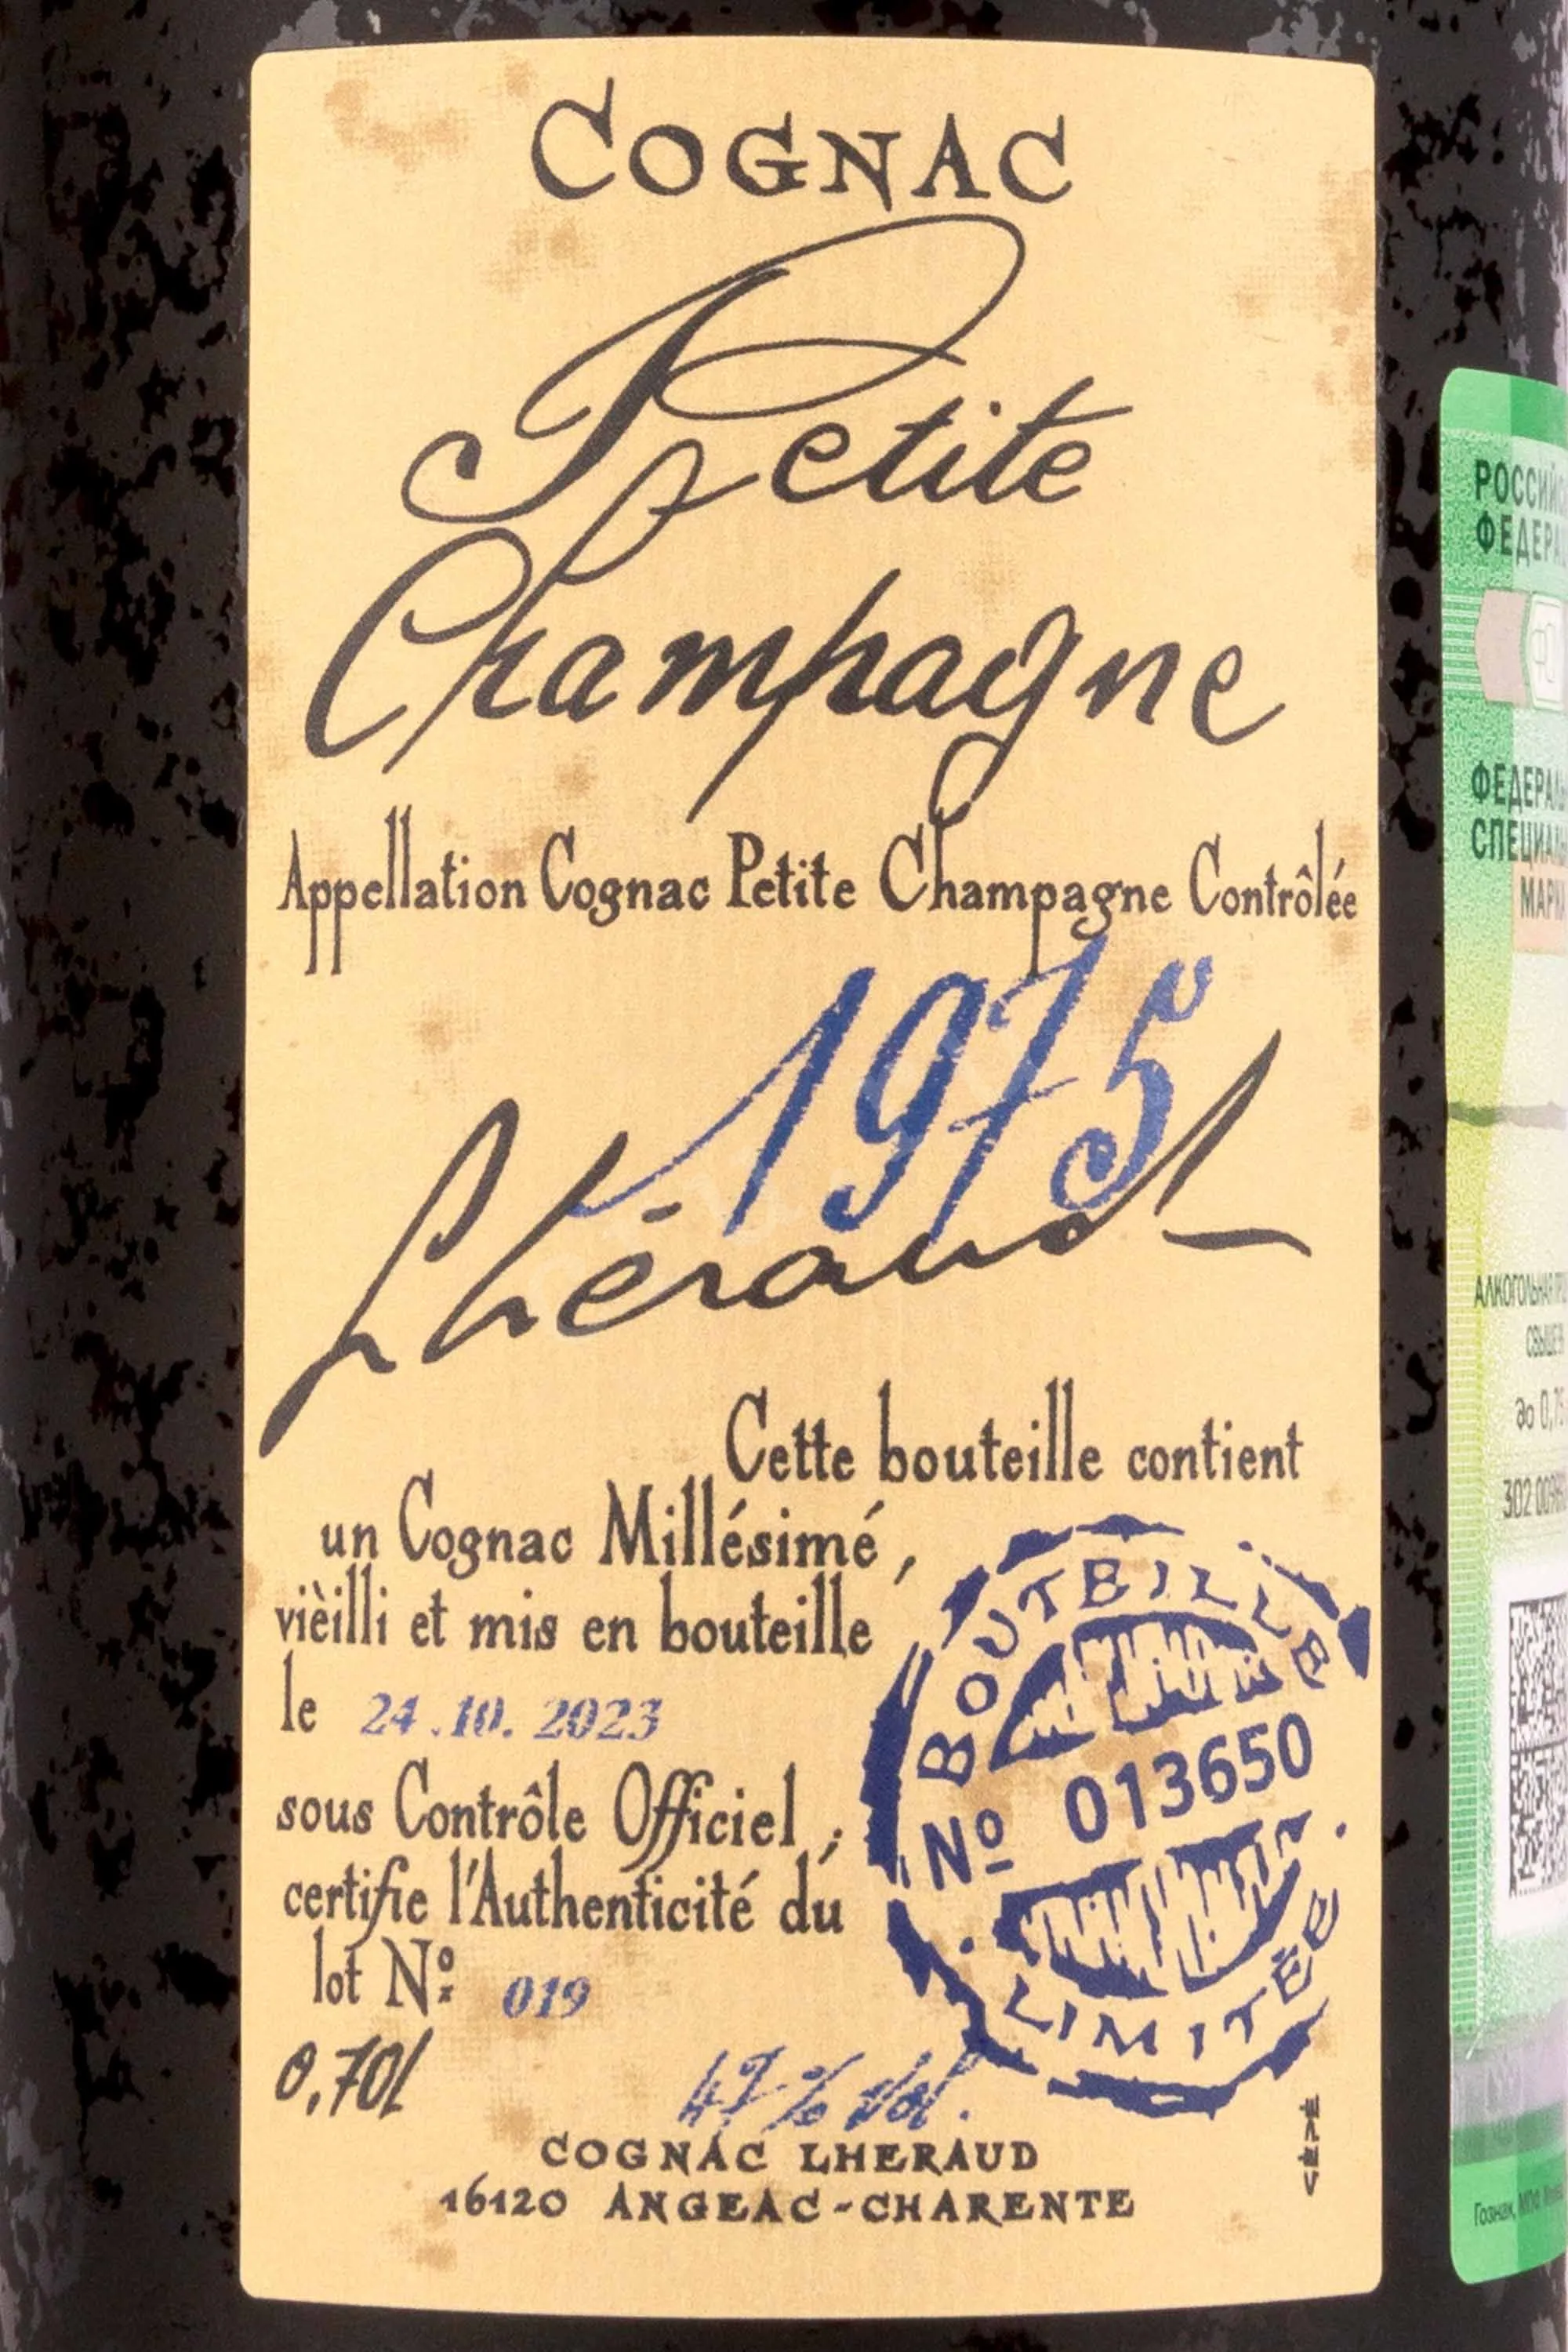 COGNAC
Petite
Champagne
Appellation Cognac Petite Champagne Contrôlée
1975
Lhéraud
Cette bouteille contient
un Cognac Millésimé,
vièilli et mis en bouteille
le 24.10.2023
sous Contrôle Officiel,
certifie l'Authenticité du
lot Nº 019
BOUTEILLE
Nº 013650
LIMITÉE
0,70l
47% Vol.
COGNAC LHERAUD
16120 ANGEAC-CHARENTE
РОССИЙ
ФЕДЕРА
ФЕДЕРАЛЬ
СПЕЦИАЛ
МАРК
АЛКОГОЛЬНАЯ
СВЫШЕ
до 0,75
302
Гознак,